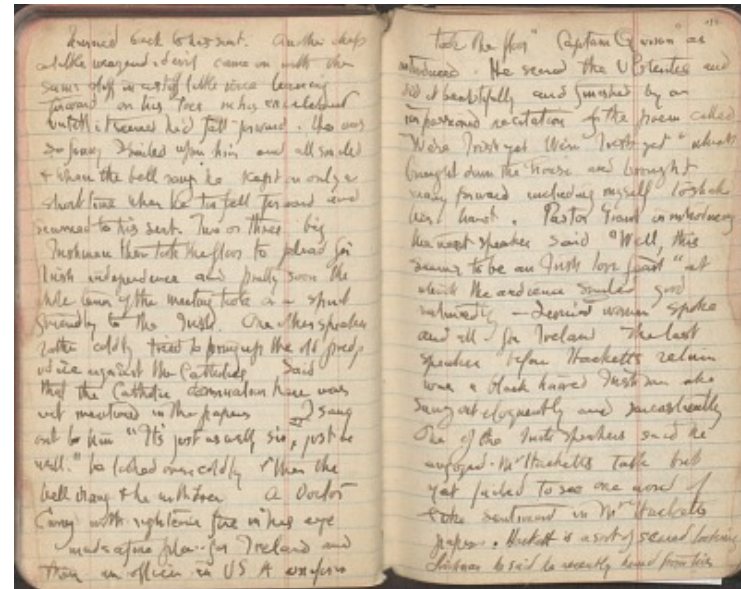 turned back to his seat. Another chap
a little weazened devil came on with the
same stuff in a little voice leaning
forward on his toes in his excitement
until it seemed he'd fall forward. He was
so funny I smiled upon him and all smiled
& when the bell rang he kept on only a
short time when he too fell forward and
to his seat. Two or three big
Irishmen then took the floor to plead for
Irish independence and pretty soon the
whole tenor of the meeting took on a spirit
friendly to the Irish. One other speaker
rather coldly tried to bring up the old prejud
udice against the Catholics Said
that the Catholic here was
not mentioned in the papers I sang
out to him "It's just as well sir, just as
well." he looked over coldly & then the
bell rang & he A Doctor
with righteous fire in his eye
made a fine plea for Ireland and
then an officer in US A uniform
took the floor "Captain " as
introduced. He the and
did it beautifully and finished by an
impassioned recitation of the poem called
"We're Irish yet We're Irish yet" which
brought down the house and brought
many forward including myself to shake
his hand. Pastor Grant in introducing
the next speaker said "Well, this
seems to be an Irish love feast" at
which the audience smiled good
naturedly — Several women spoke
and all for Ireland The last
speaker before Hacketts return
was a black haired Irishman who
sang out eloquently and sarcastically
One of the Irish speakers said he
enjoyed Mr Hacketts talk but
yet failed to see one word of
sentiment in Mr Hacketts
paper. Hackett is a sort of looking
to said to recently from